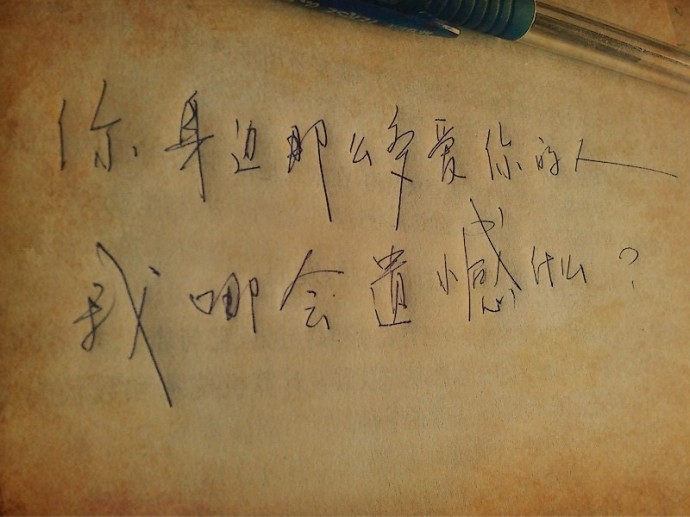 你身边那么多爱你的人
我哪会遗憾什么?